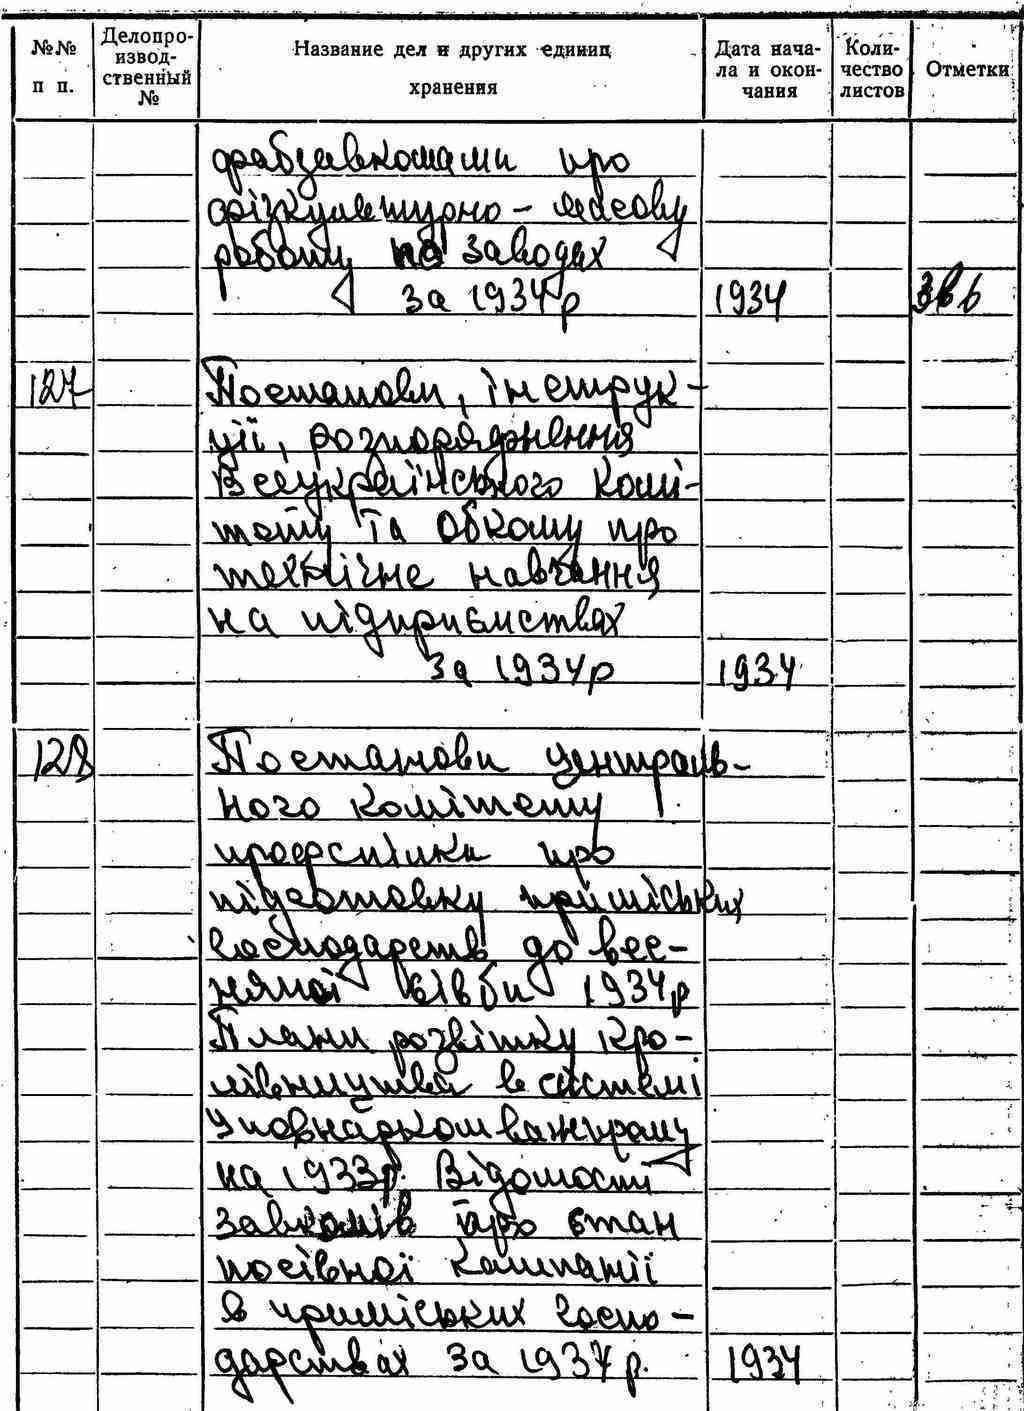 №№ п п.
Делопроизводственный №
Название дел и других единиц хранения
Дата начала и окончания
Количество листов
Отметки
фабзавкомами про
фізкультурно-масову
роботу на заводах
за 1934 р 1934
127 Постанови, інструк-
ції, розпорядження
Всеукраїнського комі-
тету та обкому про
технічне навчання
на підприємствах
за 1934 р 1934
128 Постанови централь-
ного комітету
профспілки про
підготовку приміських
господарств до вес-
няної сівби 1934 р
Плани розвітку кро-
лівництва в системі
Уповнаркомважпрому
на 1933 р. Відомості
завкомів про стан
посівної кампанії
в приміських госпо-
дарствах за 1934 р. 1934